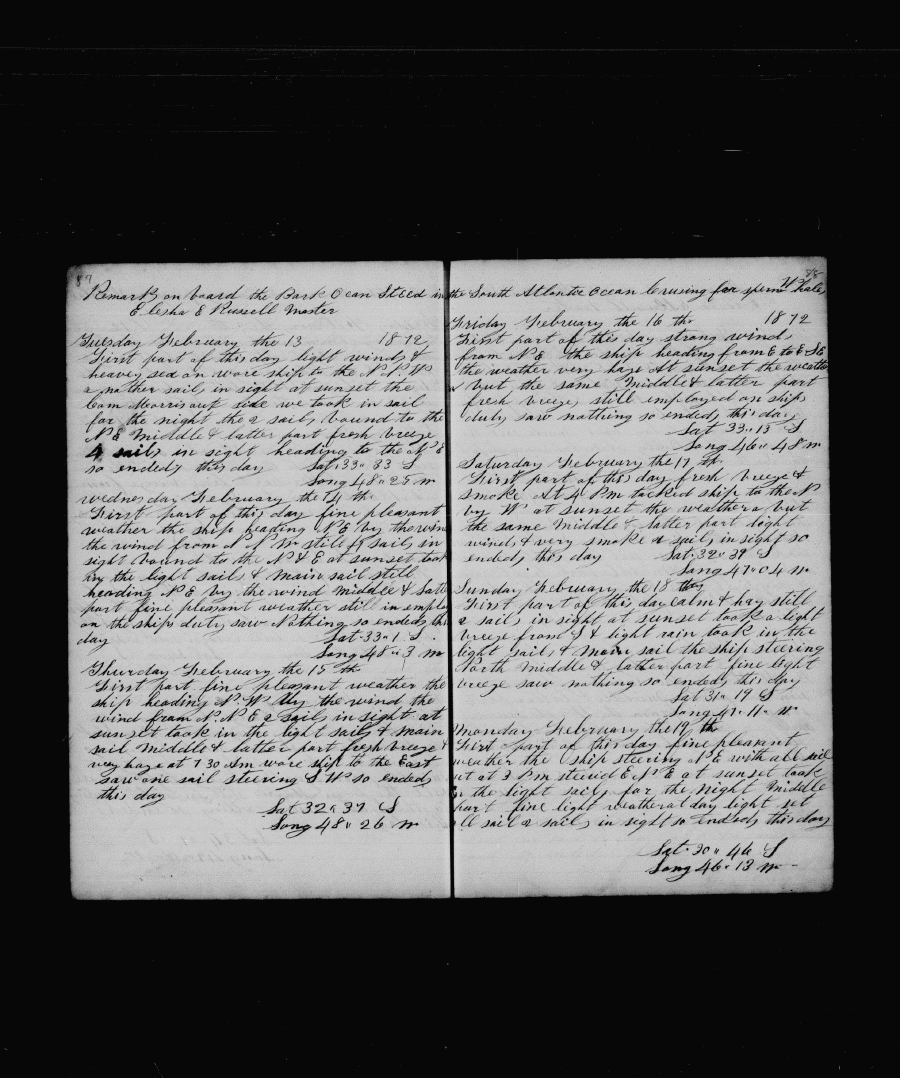 87
Remark on board the Bark Ocean Steed in
Elesha E Russell Master
Tuesday February the 13 1872
First part of this day light winds &
heavey sea on wore ship to the N N W
a nother sail in sight at sunset the
Cam Morris our side we took in sail
for the night the 2 sails bound to the
N E Middle & latter part fresh breeze
4 sails in sight heading to the N E
so ended this day Lat 33" 33 S
Long 48" 25 w
wednesday February the 14 th
First part of this day fine pleasant
weather the ship heading N E by the win
the wind from N N W still 4 sails in
sight bound to the N & E at sunset took
in the light sails & main sail still
heading N E by the wind Middle & Latter
part fine pleasant weather still in employ
on the ships duty saw Nothing so ended this
day Lat 33" 1 S
Long 48" 3 w
Thursday February the 15 th
First part fine pleasant weather the
ship heading N W by the wind the
wind from N N E 2 sails in sight at
sunset took in the light sails & main
sail Middle & latter part fresh breeze &
very haze at 7 30 Am wore ship to the East
saw one sail steering S W so ended
this day
Lat 32" 37 S
Long 48" 26 w
88
the South Atlantic Ocean Crusing for sperm Whales
Friday February the 16 th 1872
First part of this day strong winds
from N E the ship heading from E to E SE
the weather very haze At sunset the weather
but the same Middle & latter part
fresh breeze still employed on ships
duty saw nothing so ended this day
Lat 33" 13 S
Long 46" 48 w
Saturday February the 17 th
First part of this day fresh breeze &
smoke At 4 Pm tacked ship to the N
by W at sunset the weather a but
the same Middle & latter part light
winds & very smoke 2 sails in sight so
ended this day Lat 32" 39 S
Long 47" 04 w
Sunday February the 18 th
First part of this day calm & hay still
2 sails in sight at sunset took a light
breeze from S & light rain took in the
light sails & main sail the ship steering
North Middle & latter part fine light
breeze saw nothing so ended this day
Lat 31" 19 S
Long 47" 11 w
Monday February the 19 th
First part of this day fine pleasant
weather the ship steering N E with all sail
at 3 Pm steered E N E at sunset took
in the light sails for the night Middle
part fine light weather at day light set
all sail 2 sails in sight so Ended this day
Lat 30" 46 S
Long 46" 13 w